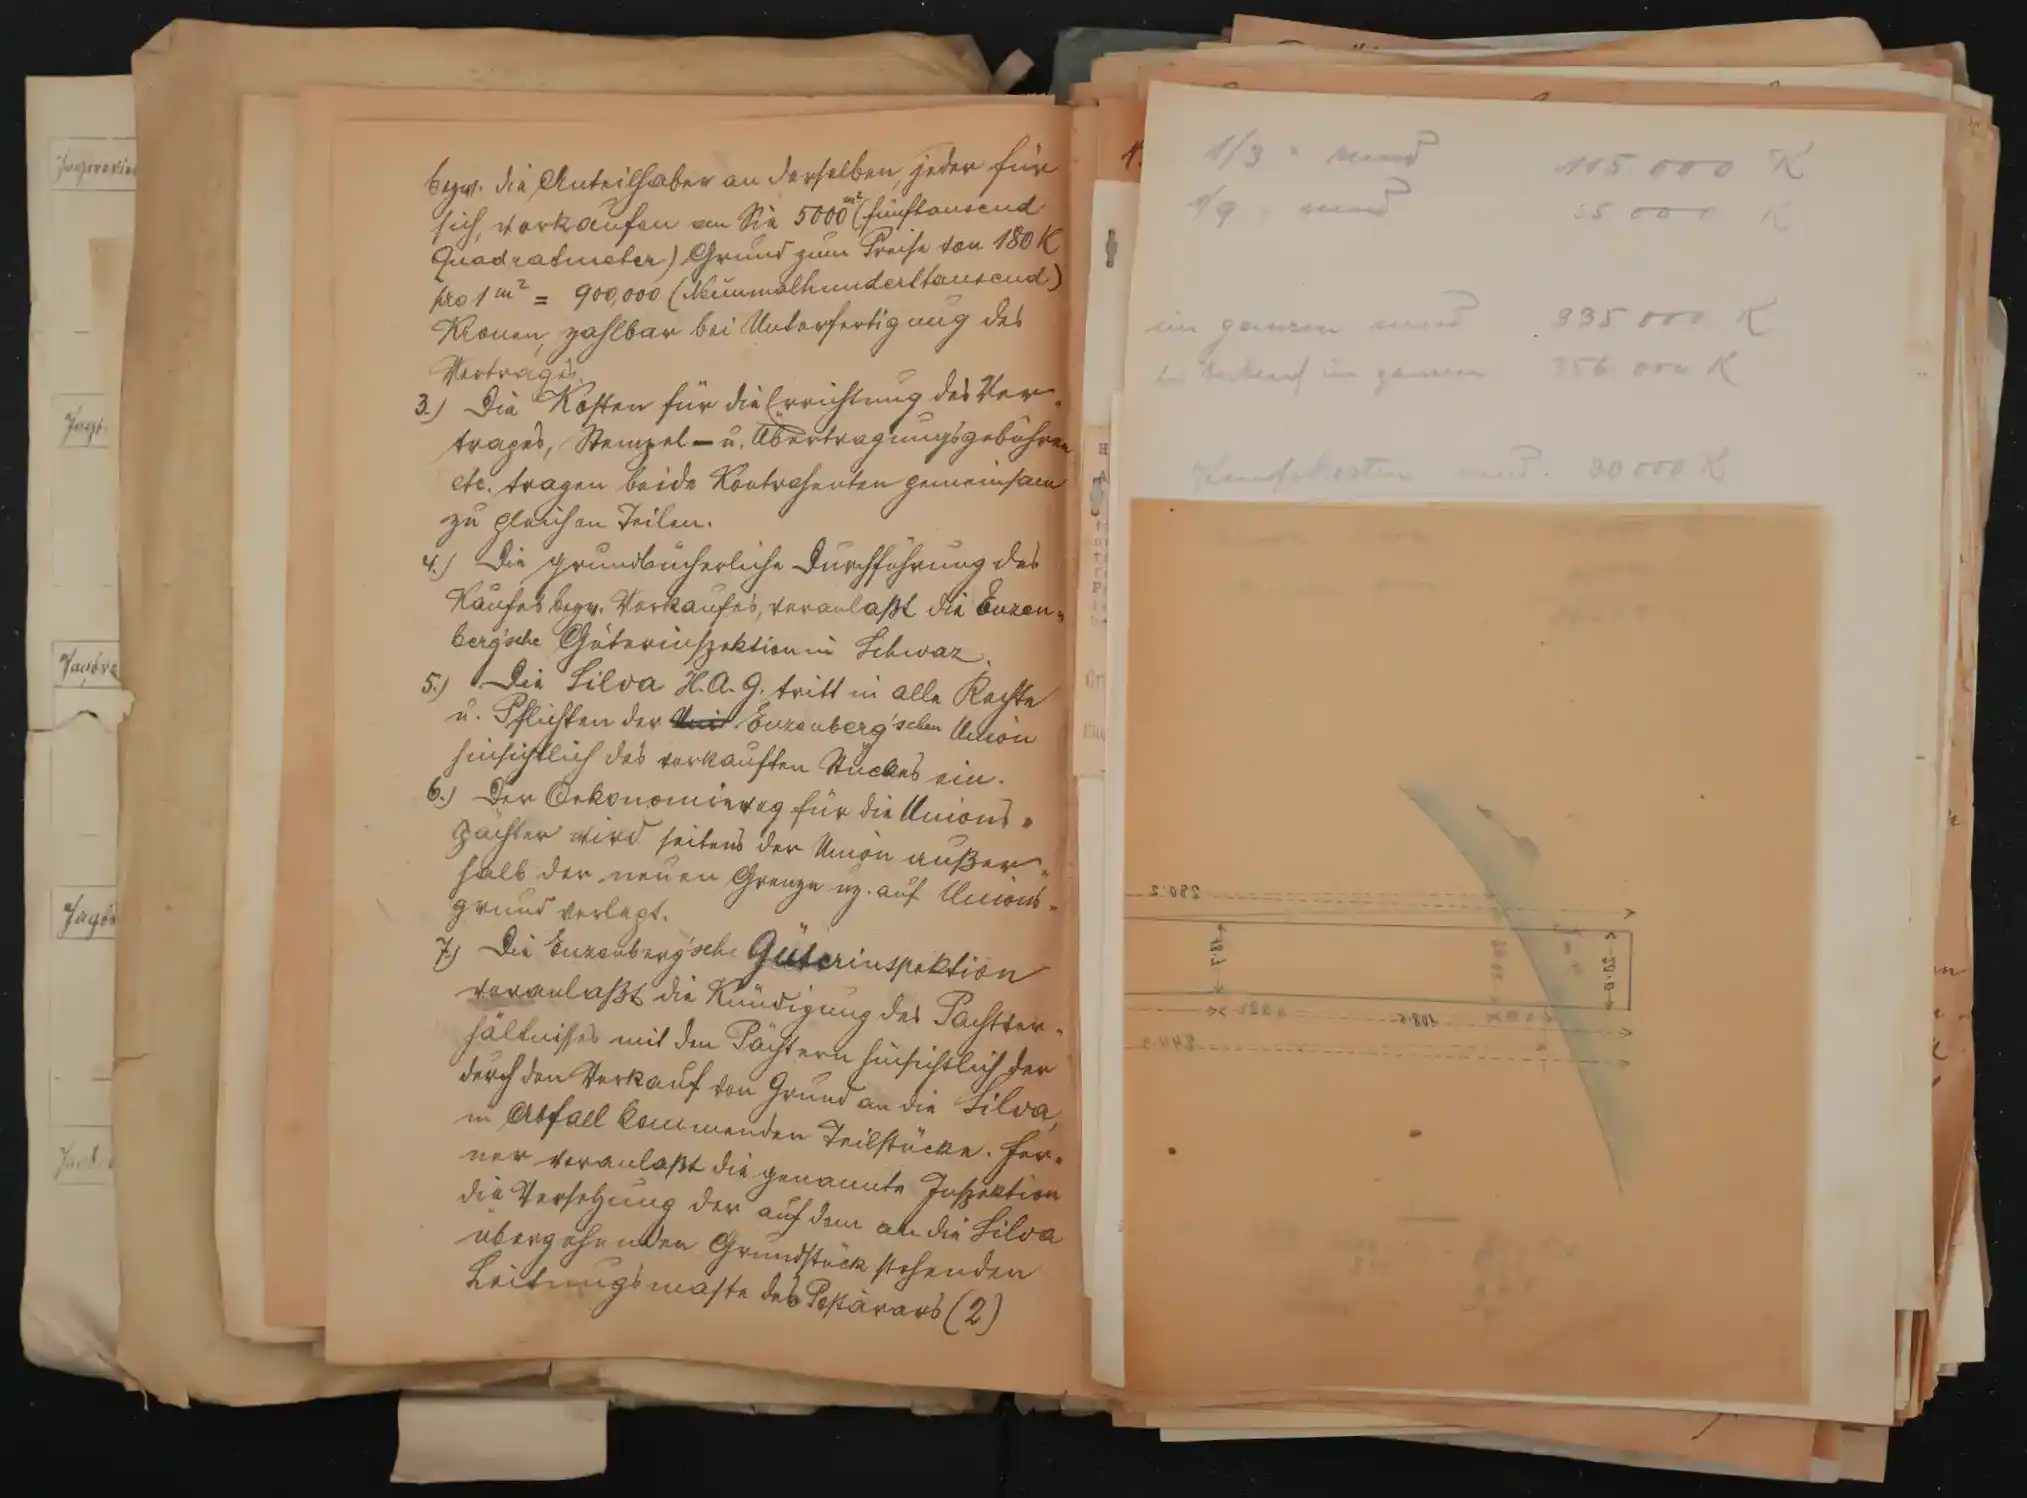 bezw. die Anteilhaber an derselben, jeder für
sich, verkaufen an Sie 5000 m² (fünftausend
Quadratmeter) Grund zum Preise von 180 K
pro 1 m² = 900,000 (Neunmalhunderttausend)
Kronen, zahlbar bei Unterfertigung des
Vertrages.
3.) Die Kosten für die Errichtung des Ver-
trages, Stempel- u. Übertragungsgebühren
etc. tragen beide Kontrahenten gemeinsam
zu gleichen Teilen.
4.) Die grundbücherliche Durchführung des
Kaufes bezw. Verkaufes, veranlaßt die Enzen-
berg'sche Güterinspektion in Schwaz.
5.) Die Silva H.A.G. tritt in alle Rechte
u. Pflichten der Enzenberg'schen Union
hinsichtlich des verkauften Stückes ein.
6.) Der Oekonomieweg für die Unions-
pächter wird seitens der Union außer-
halb der neuen Grenze uz. auf Unions-
grund verlegt.
7.) Die Enzenberg'sche Güterinspektion
veranlaßt die Kündigung des Pachtver-
hältnisses mit den Pächtern hinsichtlich der
durch den Verkauf von Grund an die Silva,
in Abfall kommenden Teilstücke. Fer-
ner veranlaßt die genannte Inspektion
die Versetzung der auf dem an die Silva
übergehenden Grundstück stehenden
Leitungsmaste des Postärars (2)
1/3 = rund 115 000 K
1/9 = rund 000 K
im ganzen rund 335 000 K
im ganzen 356 000 K
rund 30 000 K
280.2
18.7
20.0
108.6